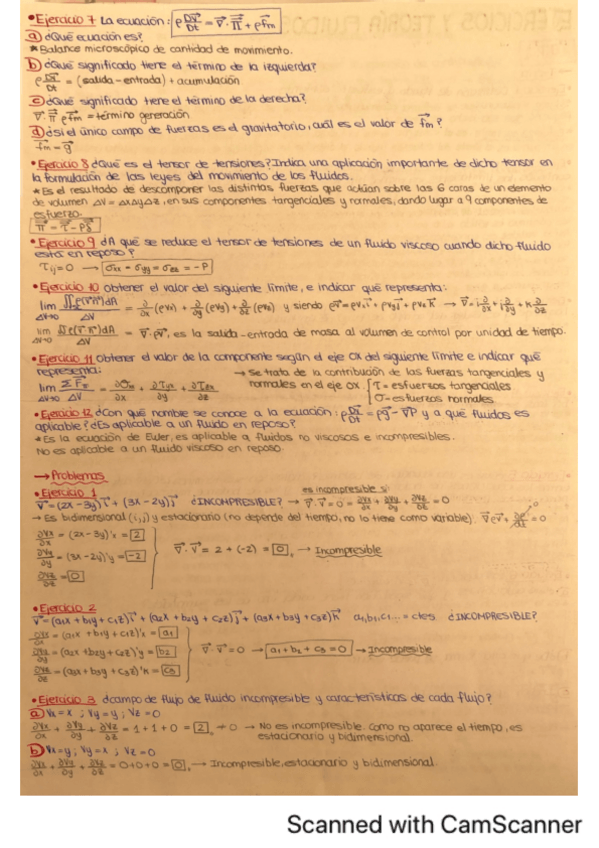 • Ejercicio 7 La ecuación: ρ Dv⃗/Dt = ∇⃗·Π⃗ + ρf⃗m
a) ¿Qué ecuación es?
* Balance microscópico de cantidad de movimiento.
b) ¿Qué significado tiene el término de la izquierda?
ρ Dv⃗/Dt = (salida - entrada) + acumulación
c) ¿Qué significado tiene el término de la derecha?
∇⃗·Π⃗ ρf⃗m = término generación
d) ¿si el único campo de fuerzas es el gravitatorio, cuál es el valor de f⃗m?
f⃗m = g⃗
• Ejercicio 8 ¿Qué es el tensor de tensiones? Indica una aplicación importante de dicho tensor en
la formulación de las leyes del movimiento de los fluidos.
* Es el resultado de descomponer las distintas fuerzas que actúan sobre las 6 caras de un elemento
de volumen ΔV = ΔxΔyΔz, en sus componentes tangenciales y normales, dando lugar a 9 componentes de
esfuerzo.
Π⃗ = τ⃗ - Pδ⃗
• Ejercicio 9 ¿A qué se reduce el tensor de tensiones de un fluido viscoso cuando dicho fluido
está en reposo?
τij = 0 → σxx = σyy = σzz = -P
• Ejercicio 10 obtener el valor del siguiente límite, e indicar qué representa:
lim ΔV→0 ∬ρ(v⃗n⃗)dA / ΔV = ∂/∂x (ρvx) + ∂/∂y (ρvy) + ∂/∂z (ρvz) y siendo ρv⃗ = ρvx i⃗ + ρvy j⃗ + ρvz k⃗ → ∇⃗ = i ∂/∂x + j ∂/∂y + k ∂/∂z
lim ΔV→0 ∬ρ(v⃗ n⃗)dA / ΔV = ∇⃗·ρv⃗, es la salida-entrada de masa al volumen de control por unidad de tiempo.
• Ejercicio 11 Obtener el valor de la componente según el eje OX del siguiente límite e indicar qué
representa: → Se trata de la contribución de las fuerzas tangenciales y
lim ΔV→0 ΣF⃗ / ΔV = ∂σxx/∂x + ∂τyx/∂y + ∂τzx/∂z normales en el eje OX. { τ = esfuerzos tangenciales
σ = esfuerzos normales
• Ejercicio 12 ¿Con qué nombre se conoce a la ecuación: ρ Dv⃗/Dt = ρg⃗ - ∇P y a qué fluidos es
aplicable? ¿Es aplicable a un fluido en reposo?
* Es la ecuación de Euler, es aplicable a fluidos no viscosos e incompresibles.
No es aplicable a un fluido viscoso en reposo.
→ Problemas
• Ejercicio 1 es incompresible si
v⃗ = (2x - 3y) i⃗ + (3x - 2y) j⃗ ¿INCOMPRESIBLE? → ∇⃗·v⃗ = 0 = ∂vx/∂x + ∂vy/∂y + ∂vz/∂z = 0
→ Es bidimensional (i,j) y estacionario (no depende del tiempo, no lo tiene como variable).
∂vx/∂x = (2x - 3y)'x = 2
∂vy/∂y = (3x - 2y)'y = -2
∂vz/∂z = 0
∇⃗·v⃗ = 2 + (-2) = 0 → Incompresible
• Ejercicio 2
v⃗ = (a1x + b1y + c1z) i⃗ + (a2x + b2y + c2z) j⃗ + (a3x + b3y + c3z) k⃗ a1, b1, c1... = ctes ¿INCOMPRESIBLE?
∂vx/∂x = (a1x + b1y + c1z)'x = a1
∂vy/∂y = (a2x + b2y + c2z)'y = b2
∂vz/∂z = (a3x + b3y + c3z)'k = c3
∇⃗·v⃗ = 0 → a1 + b2 + c3 = 0 → Incompresible
• Ejercicio 3 ¿campo de flujo de fluido incompresible y características de cada flujo?
a) Vx = x ; Vy = y ; Vz = 0
∂vx/∂x + ∂vy/∂y + ∂vz/∂z = 1 + 1 + 0 = 2 ≠ 0 → No es incompresible. Como no aparece el tiempo, es
estacionario y bidimensional.
b) Vx = y ; Vy = x ; Vz = 0
∂vx/∂x + ∂vy/∂y + ∂vz/∂z = 0 + 0 + 0 = 0 → Incompresible, estacionario y bidimensional.
Scanned with CamScanner